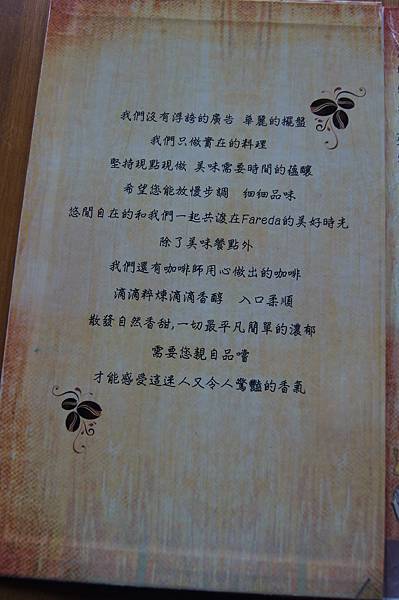 我們沒有浮誇的廣告 華麗的擺盤
我們只做實在的料理
堅持現點現做 美味需要時間的蘊釀
希望您能放慢步調 細細品味
悠閒自在的和我們一起共渡在Fareda的美好時光
除了美味餐點外
我們還有咖啡師用心做出的咖啡
滴滴粹煉滴滴香醇 入口柔順
散發自然香甜,一切最平凡簡單的濃郁
需要您親自品嚐
才能感受這迷人又令人驚豔的香氣